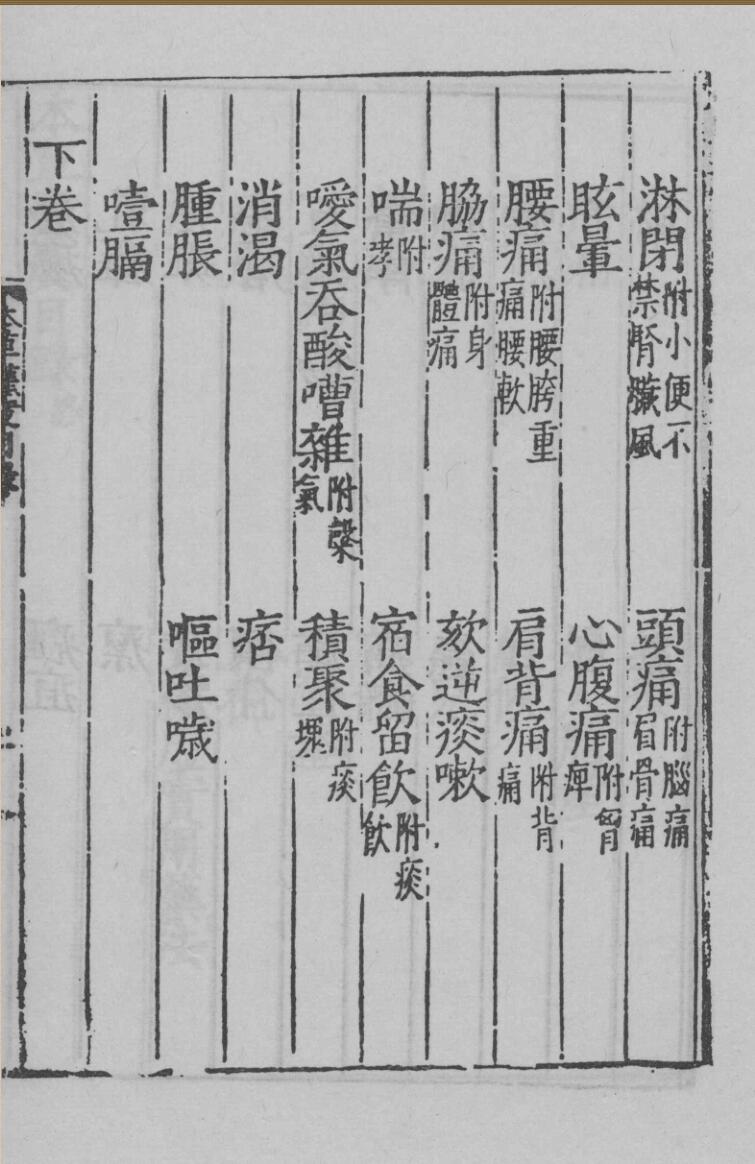 淋閉附小便不禁腎臟風 頭痛附腦痛眉骨痛
眩暈 心腹痛附胷痺
腰痛附腰胯重痛腰軟 肩背痛附背痛
脇痛附身體痛 欬逆痰嗽
喘附孝 宿食留飲附痰飲
噯氣吞酸嘈雜附槩氣 積聚附痰塊
消渴 痞
腫脹 嘔吐噦
噎膈
下卷